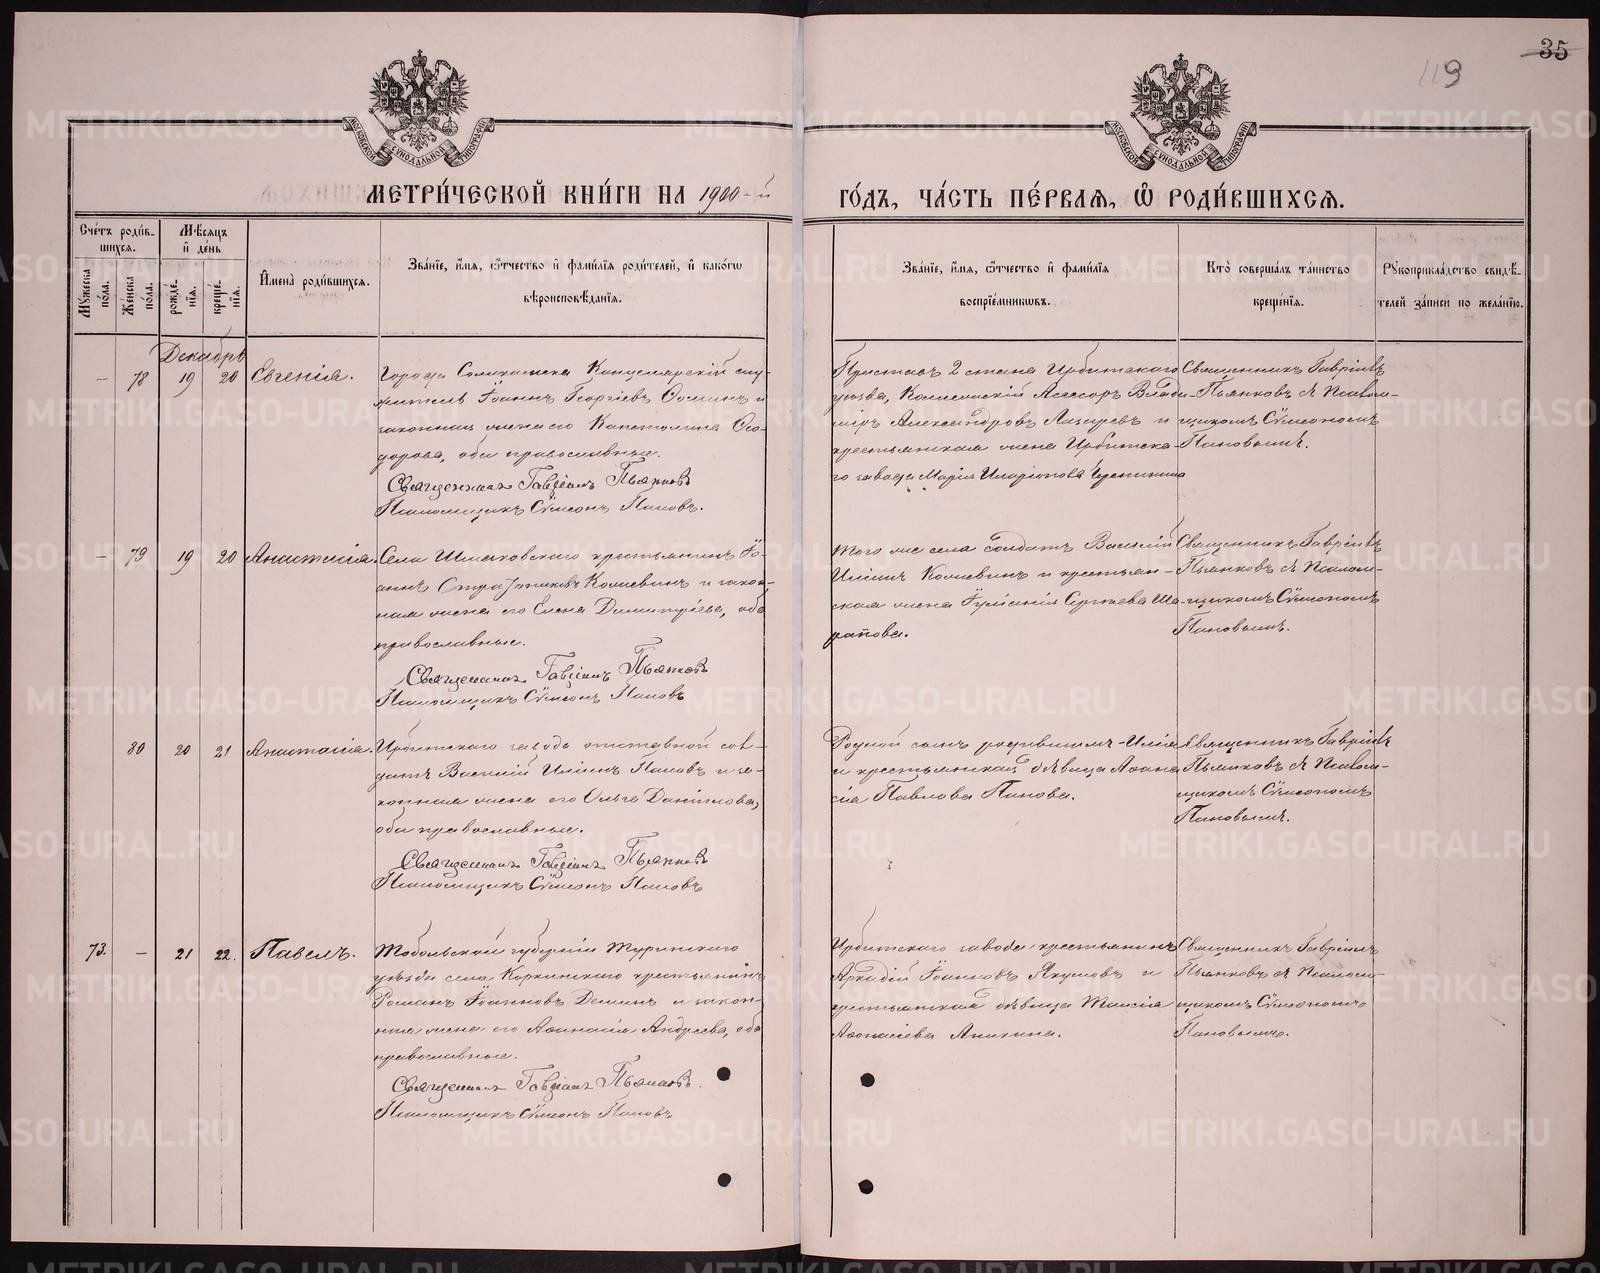 35
119
МОСКОВСКОЙ СУНОДАЛЬНОЙ ТИПОГРАФІИ
МОСКОВСКОЙ СУНОДАЛЬНОЙ ТИПОГРАФІИ
МЕТРИ́ЧЕСКОЙ КНИ́ГИ НА 1900-й
ГО́ДЪ, ЧА́СТЬ ПЕ́РВАѦ, Ѽ РОДИ́ВШИХСѦ.
Сче́тъ роди́в-
шихсѧ.
Мꙋ́жеска по́ла.
Же́нска по́ла.
Мѣ́сѧцъ
и҆ де́нь
рожде́-
нїѧ.
креще́-
нїѧ.
И҆мена̀ роди́вшихсѧ.
Зва́нїе, и҆́мѧ, ѻ҆́тчество и҆ фами́лїѧ роди́телей, и҆ како́гѡ
вѣроисповѣ́данїѧ.
Зва́нїе, и҆́мѧ, ѻ҆́тчество и҆ фами́лїѧ
воспрїе́мниковъ.
Кто̀ соверша́лъ та́инство
креще́нїѧ.
Рꙋкоприкла́дство свидѣ́-
телей за́писи по жела́нїю.
Декабрь
— 78 19 20 Евгенія.
Города Соликамска Канцелярскій слу-
житель Іоаннъ Георгіевъ и
законная жена его Капитолина Ѳео-
дорова, оба православные.
Священникъ Гавріилъ Пьянковъ
Псаломщикъ Сѵмеонъ Пановъ.
Приставъ 2 стана Ирбитскаго
уѣзда, Коллежскій Асессоръ Влади-
міръ Александровъ и
крестьянская жена Ирбитска-
го завода Марія Иларіонова
Священникъ Гавріилъ
Пьянковъ съ Псалом-
щикомъ Сѵмеономъ
Пановымъ.
— 79 19 20 Анастасія.
Села крестьянинъ Іо-
аннъ Кошевинъ и закон-
ная жена его Елена Димитріева, оба
православные.
Священникъ Гавріилъ Пьянковъ
Псаломщикъ Сѵмеонъ Пановъ
Того же села солдатъ Василій
Ильинъ Кошевинъ и крестьян-
ская жена Сергіева Ша-
рапова.
Священникъ Гавріилъ
Пьянковъ съ Псалом-
щикомъ Сѵмеономъ
Пановымъ.
80 20 21 Анастасія.
Ирбитскаго завода отставной сол-
датъ Василій Ильинъ Пановъ и за-
конная жена его Ольга Даніилова,
оба православные.
Священникъ Гавріилъ Пьянковъ
Псаломщикъ Сѵмеонъ Пановъ
Родной сынъ родившимъ - Илія
и крестьянская дѣвица Аѳана-
сія Павлова Панова.
Священникъ Гавріилъ
Пьянковъ съ Псалом-
щикомъ Сѵмеономъ
Пановымъ.
73. — 21 22. Павелъ.
Тобольской губерніи Туринскаго
уѣзда села Коркинскаго крестьянинъ
Романъ Іоанновъ Деминъ и закон-
ная жена его Аѳанасія Андреева, оба
православные.
Священникъ Гавріилъ Пьянковъ.
Псаломщикъ Сѵмеонъ Пановъ
Ирбитскаго завода крестьянинъ
Аркадій Іоанновъ Якушовъ и
крестьянская дѣвица Таисія
Аѳанасіева Аникина.
Священникъ Гавріилъ
Пьянковъ съ Псалом-
щикомъ Сѵмеономъ
Пановымъ.
METRIKI.GASO-URAL.RU